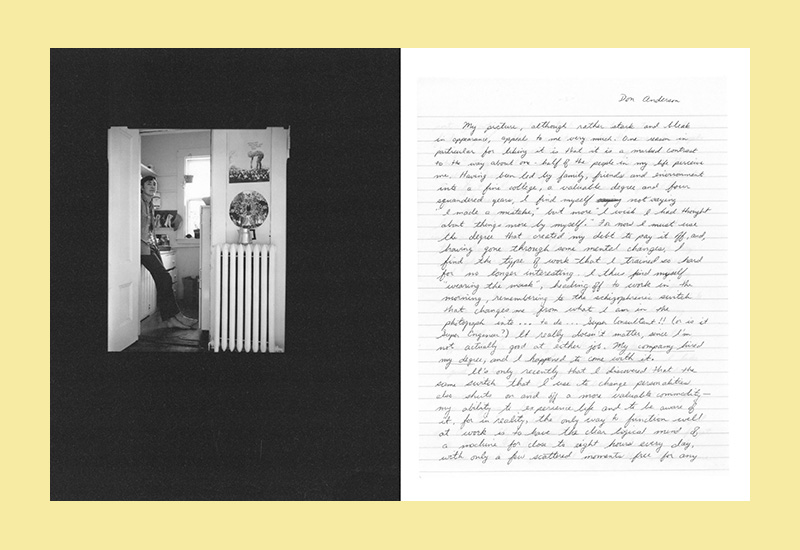 Don Anderson
My picture, although rather stark and bleak
in appearance, appeals to me very much. One reason in
particular for liking it is that it is a marked contrast
to the way about one-half of the people in my life perceive
me. Having been led by family, friends and environment
into a fine college, a valuable degree and four
squandered years, I find myself not saying
"I made a mistake," but more "I wish I had thought
about things more by myself." For now I must use
the degree that created my debt to pay it off, and,
having gone through some mental changes, I
find the type of work that I trained so hard
for no longer interesting. I thus find myself
"wearing the mask", heading off to work in the
morning, remembering to the schizophrenic switch
that changes me from what I am in the
photograph into ... ta da ... Super Consultant!! (or is it
Super Engineer?) It really doesn't matter, since I'm
not actually good at either job. My company hired
my degree, and I happened to come with it.
It's only recently that I discovered that the
same switch that I use to change personalities
also shuts on and off a more valuable commodity—
my ability to experience life and to be aware of
it, for in reality, the only way to function well
at work is to have the clear logical mind of
a machine for close to eight hours every day,
with only a few scattered moments free for any